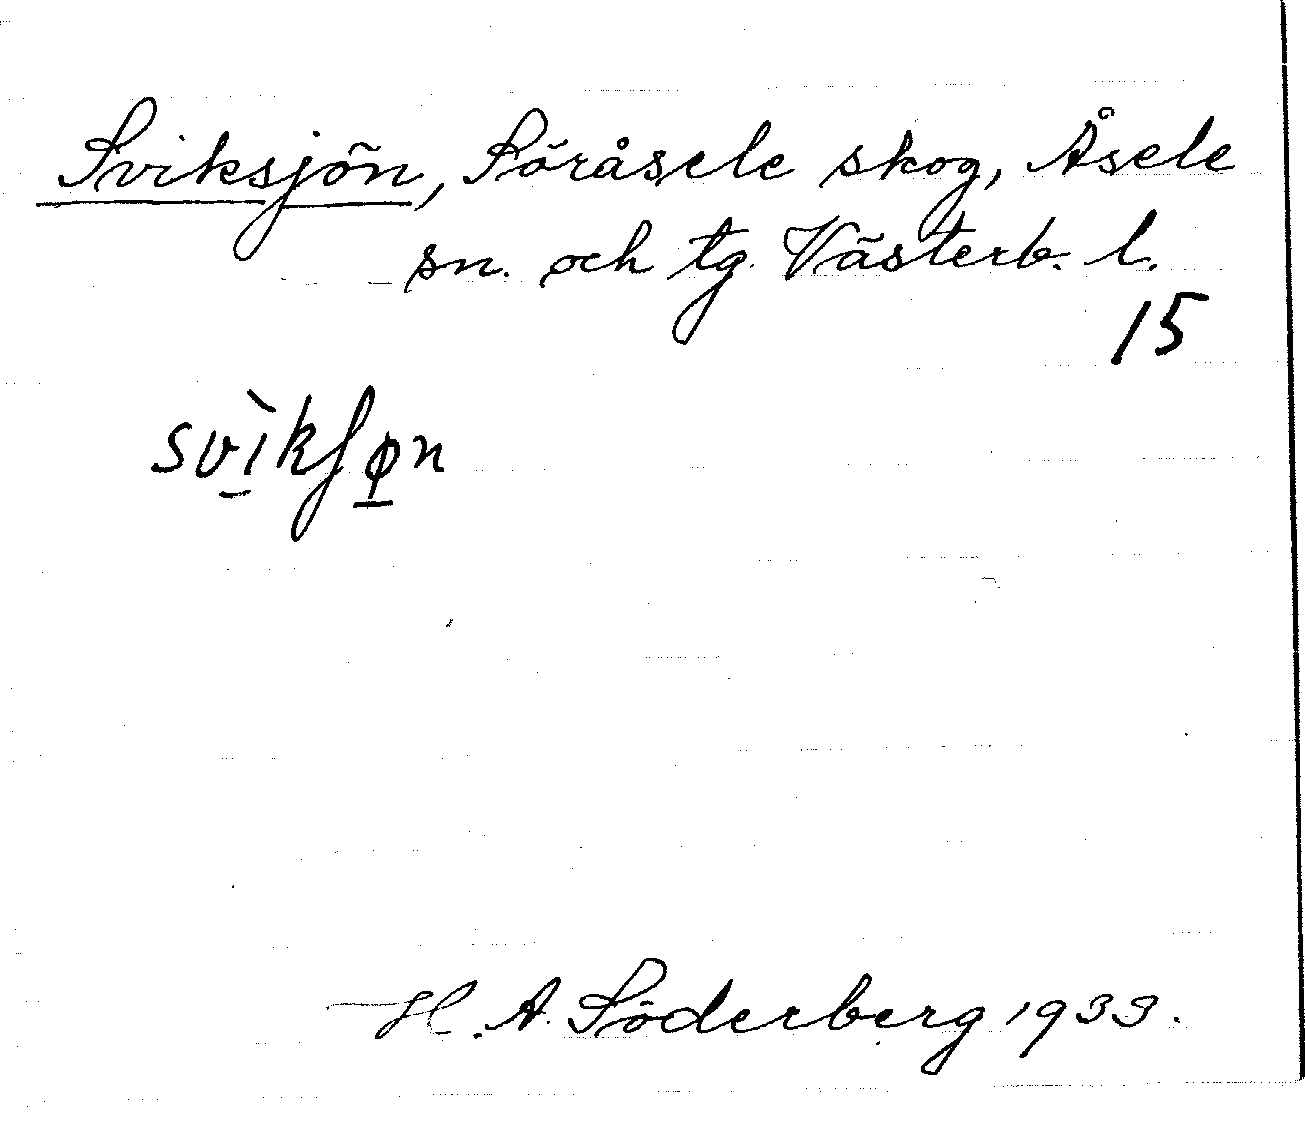 Sviksjön, Söråsele skog, Åsele
sn. och tg. Västerb. l.
15
svı̲̀kʃø̲n
H. A. Söderberg 1933.